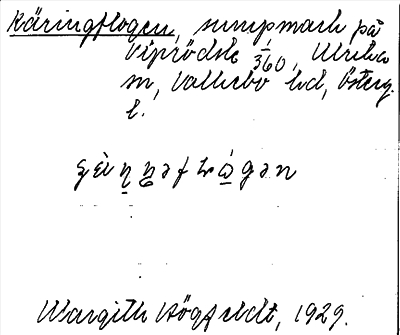 Käringflogen, sumpmark på
Viprödsle 1/360, Ulrika
sn, Valkebo hd, Österg.
l.
Margith Högfeldt, 1929.